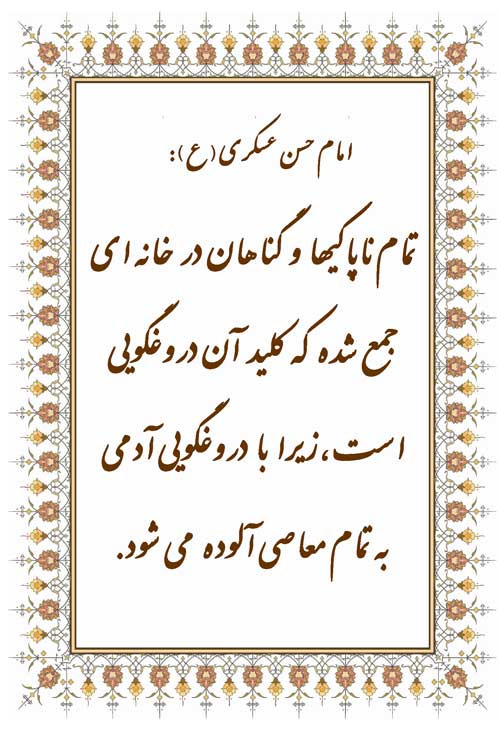 امام حسن عسکری (ع):
تمام ناپاکیها و گناهان در خانه ای
جمع شده که کلید آن دروغگویی
است، زیرا با دروغگویی آدمی
به تمام معاصی آلوده می شود.